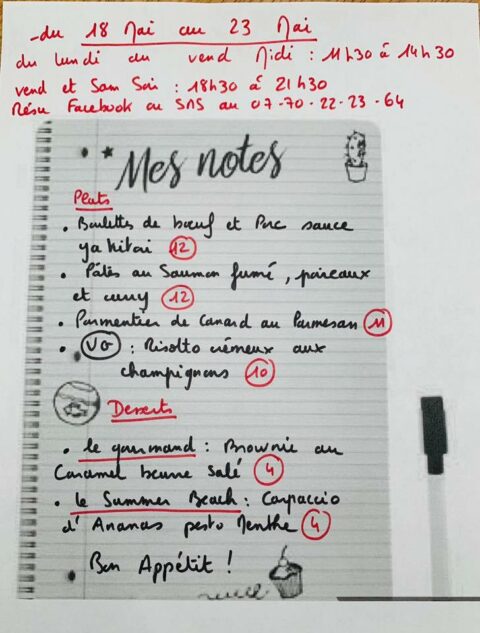 du 18 Mai au 23 Mai
du lundi au vend Midi : 11h30 à 14h30
vend et Sam Soir : 18h30 à 21h30
Résa Facebook ou SMS au 07-70-22-23-64
Mes notes
Plats
• Boulettes de bœuf et Porc sauce
yakitori 12
• Pâtes au Saumon fumé, poireaux
et curry 12
• Parmentier de Canard au Parmesan 11
• VG : Risotto crémeux aux
champignons 10
Desserts
• le gourmand : Brownie au
Caramel beurre Salé 4
• le Summer Beach : Carpaccio
d'Ananas pesto Menthe 4
Bon Appétit !